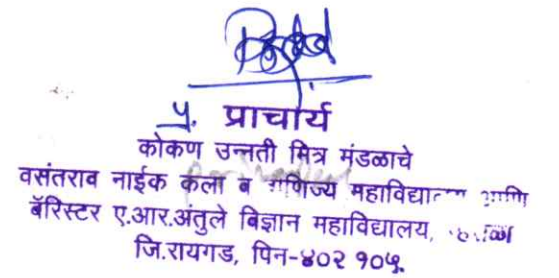 प्र. प्राचार्य
कोकण उन्नती मित्र मंडळाचे
वसंतराव नाईक कला व वाणिज्य महाविद्यालय आणि
बॅरिस्टर ए.आर.अंतुले विज्ञान महाविद्यालय,
जि.रायगड, पिन-४०२ १०५.